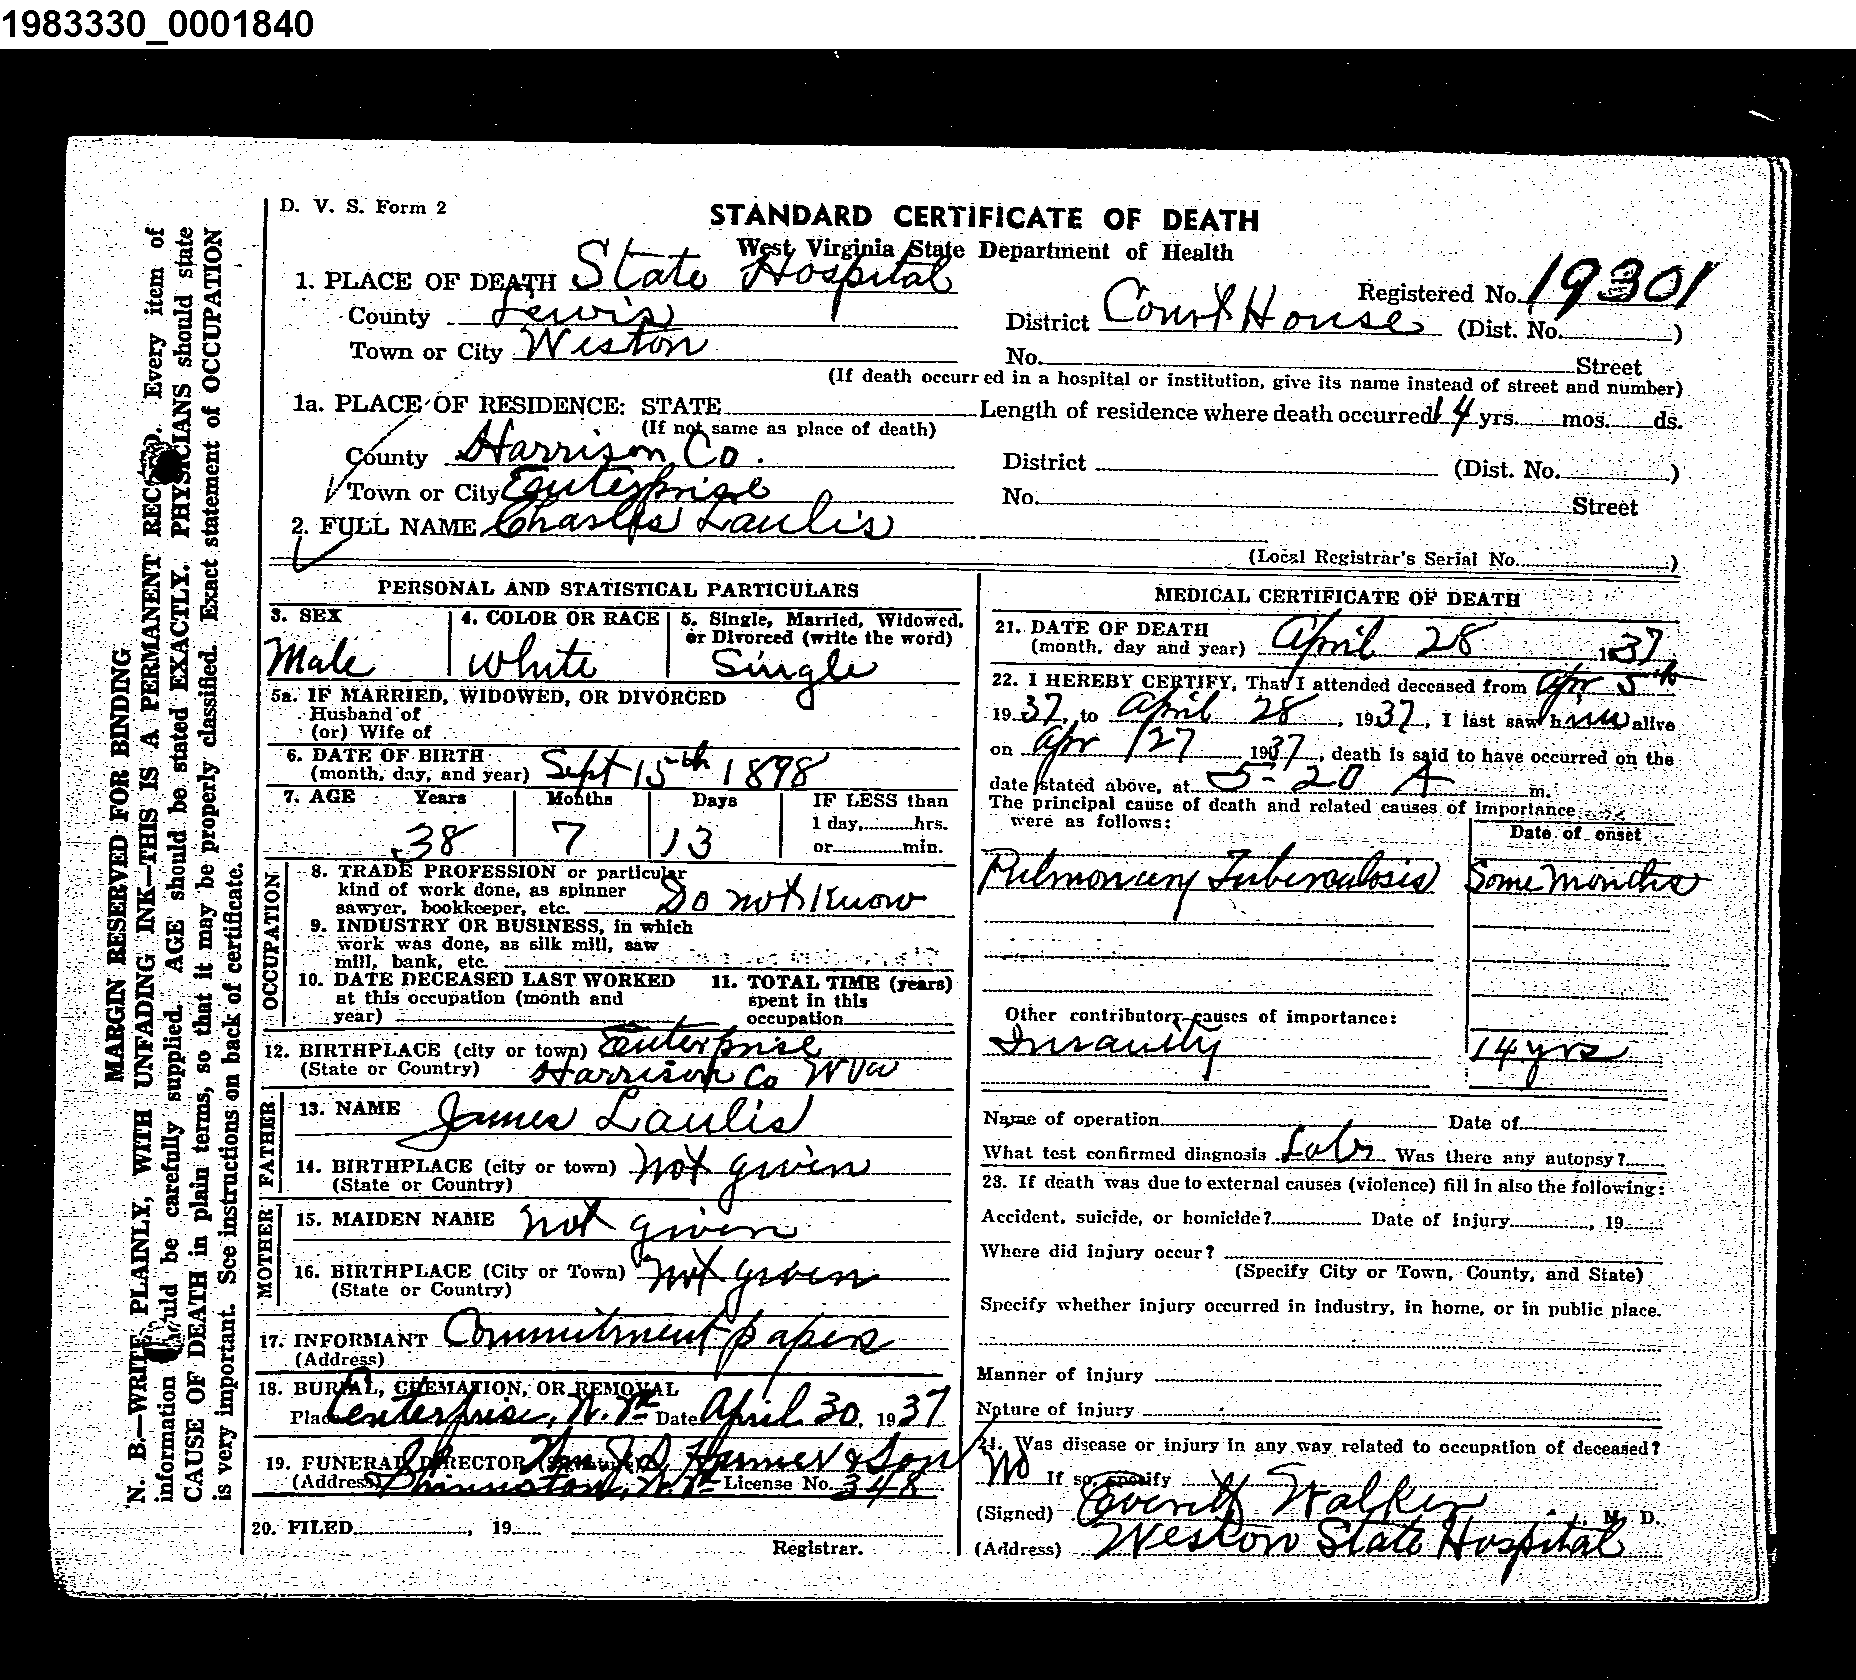 1983330_0001840
D. V. S. Form 2
STANDARD CERTIFICATE OF DEATH
West Virginia State Department of Health
1. PLACE OF DEATH State Hospital
Registered No. 19301
County Lewis
District Court House (Dist. No. )
Town or City Weston
No. Street
(If death occurred in a hospital or institution, give its name instead of street and number)
1a. PLACE OF RESIDENCE: STATE
Length of residence where death occurred 14 yrs. mos. ds.
(If not same as place of death)
County Harrison Co.
District (Dist. No. )
Town or City Enterprise
No. Street
2. FULL NAME Charles Laulis
(Local Registrar's Serial No. )
PERSONAL AND STATISTICAL PARTICULARS
3. SEX Male
4. COLOR OR RACE White
5. Single, Married, Widowed, or Divorced (write the word) Single
5a. IF MARRIED, WIDOWED, OR DIVORCED
Husband of
(or) Wife of
6. DATE OF BIRTH
(month, day, and year) Sept 15th 1898
7. AGE Years Months Days IF LESS than
1 day, hrs.
38 7 13 or min.
OCCUPATION
8. TRADE PROFESSION or particular
kind of work done, as spinner
sawyer, bookkeeper, etc. Do not Know
9. INDUSTRY OR BUSINESS, in which
work was done, as silk mill, saw
mill, bank, etc.
10. DATE DECEASED LAST WORKED
at this occupation (month and
year)
11. TOTAL TIME (years)
spent in this
occupation
12. BIRTHPLACE (city or town) Enterprise
(State or Country) Harrison Co W Va
FATHER
13. NAME James Laulis
14. BIRTHPLACE (city or town) Not given
(State or Country)
MOTHER
15. MAIDEN NAME Not given
16. BIRTHPLACE (City or Town) Not given
(State or Country)
17. INFORMANT Commitment papers
(Address)
18. BURIAL, CREMATION, OR REMOVAL
Place Enterprise, W. Va Date April 30, 1937
19. FUNERAL DIRECTOR Harmer & Son
(Address) Shinnston, W. Va License No. 348
20. FILED , 19
Registrar.
MEDICAL CERTIFICATE OF DEATH
21. DATE OF DEATH
(month, day and year) April 28 1937
22. I HEREBY CERTIFY, That I attended deceased from Apr 5th
1937, to April 28, 1937, I last saw him alive
on Apr 27 1937, death is said to have occurred on the
date stated above, at 5-20 A m.
The principal cause of death and related causes of importance
were as follows:
Date of onset
Pulmonary Tuberculosis Some Months
Other contributory causes of importance:
Insanity 14 yrs
Name of operation Date of
What test confirmed diagnosis Labr Was there any autopsy?
23. If death was due to external causes (violence) fill in also the following:
Accident, suicide, or homicide? Date of injury , 19
Where did injury occur?
(Specify City or Town, County, and State)
Specify whether injury occurred in industry, in home, or in public place.
Manner of injury
Nature of injury
24. Was disease or injury in any way related to occupation of deceased?
No If so, specify
(Signed) Everett Walker, M. D.
(Address) Weston State Hospital
MARGIN RESERVED FOR BINDING
N. B.—WRITE PLAINLY, WITH UNFADING INK—THIS IS A PERMANENT RECORD. Every item of
information should be carefully supplied. AGE should be stated EXACTLY. PHYSICIANS should state
CAUSE OF DEATH in plain terms, so that it may be properly classified. Exact statement of OCCUPATION
is very important. See instructions on back of certificate.